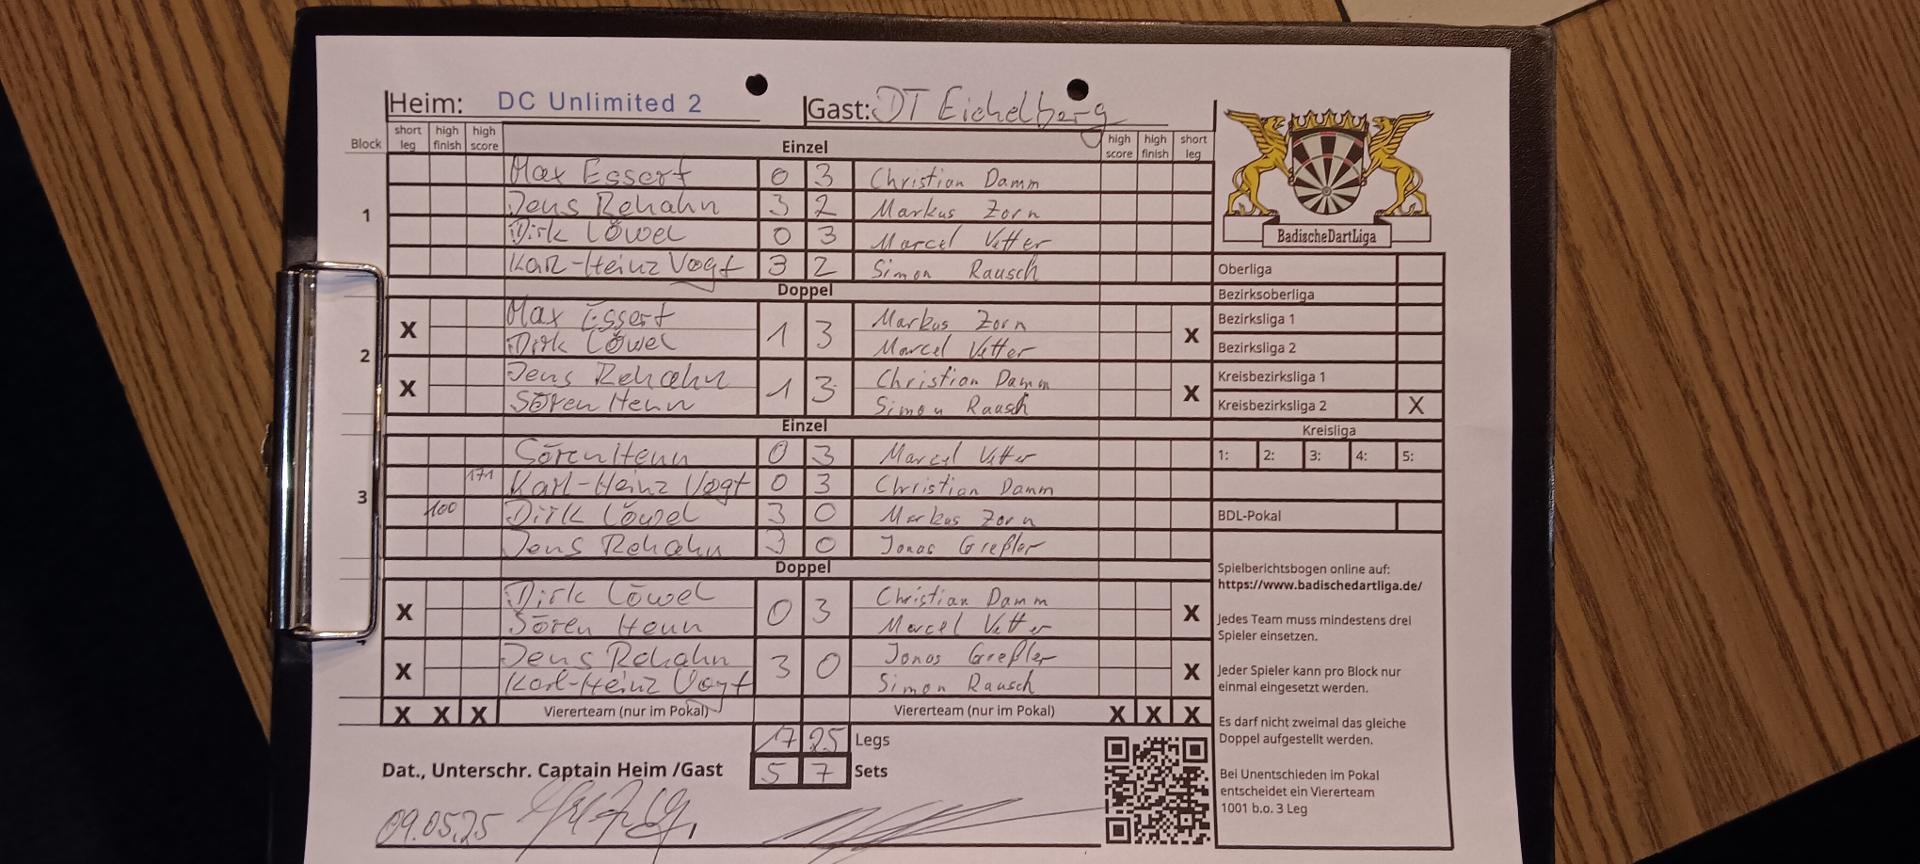 Heim: DC Unlimited 2 Gast: DT Eichelberg
Block short leg high finish high score Einzel high score high finish short leg
1
Max Essert 0 3 Christian Damm
Jens Rehahn 3 2 Markus Zorn
Dirk Löwel 0 3 Marcel Vetter
Karl-Heinz Vogt 3 2 Simon Rausch
Doppel
2
X Max Essert 1 3 Markus Zorn X
Dirk Löwel Marcel Vetter
X Jens Rehahn 1 3 Christian Damm X
Sören Henn Simon Rausch
Einzel
3
Sören Henn 0 3 Marcel Vetter
171 Karl-Heinz Vogt 0 3 Christian Damm
100 Dirk Löwel 3 0 Markus Zorn
Jens Rehahn 3 0 Jonas Greßler
Doppel
X Dirk Löwel 0 3 Christian Damm X
Sören Henn Marcel Vetter
X Jens Rehahn 3 0 Jonas Greßler X
Karl-Heinz Vogt Simon Rausch
X X X Viererteam (nur im Pokal) Viererteam (nur im Pokal) X X X
17 25 Legs
Dat., Unterschr. Captain Heim /Gast 5 7 Sets
09.05.25
BadischeDartLiga
Oberliga
Bezirksoberliga
Bezirksliga 1
Bezirksliga 2
Kreisbezirksliga 1
Kreisbezirksliga 2 X
Kreisliga
1: 2: 3: 4: 5:
BDL-Pokal
Spielberichtsbogen online auf:
https://www.badischedartliga.de/
Jedes Team muss mindestens drei
Spieler einsetzen.
Jeder Spieler kann pro Block nur
einmal eingesetzt werden.
Es darf nicht zweimal das gleiche
Doppel aufgestellt werden.
Bei Unentschieden im Pokal
entscheidet ein Viererteam
1001 b.o. 3 Leg